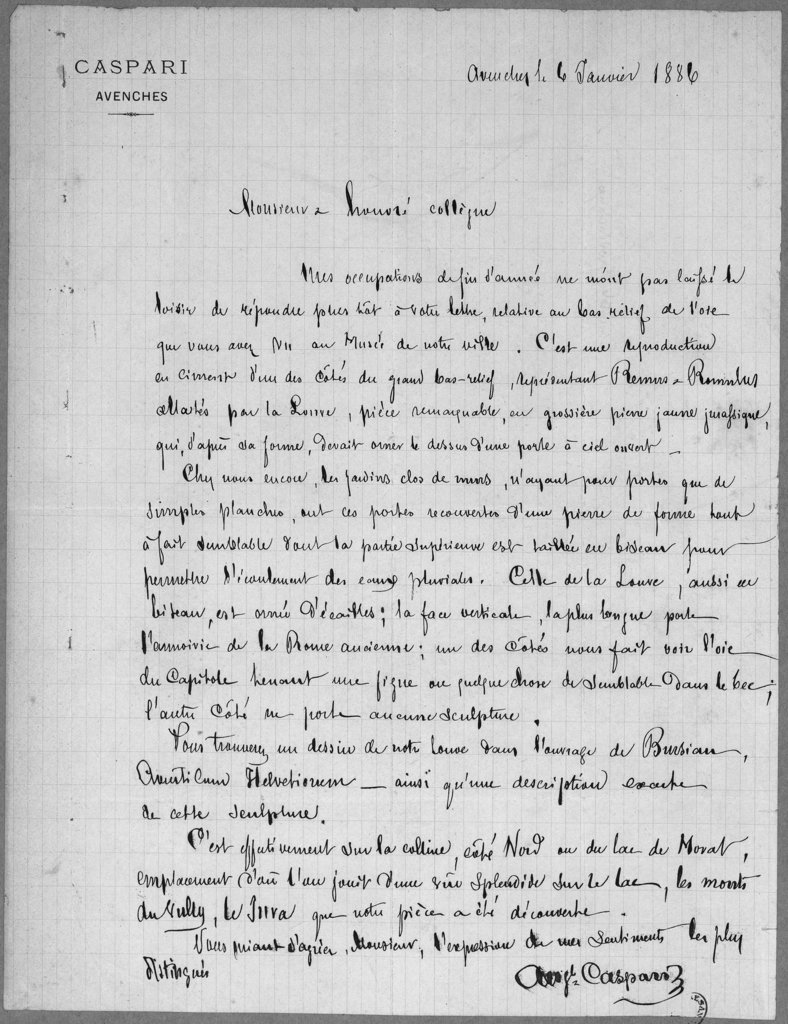 CASPARI
AVENCHES
Avenches le 6 Janvier 1886
Monsieur & honoré collègue
Mes occupations de fin d'année ne m'ont pas laissé le
loisir de répondre plus tôt à votre lettre, relative au bas-relief de l'oie
que vous avez vu au Musée de notre ville. C'est une reproduction
en ciment d'un des côtés du grand bas-relief, représentant Remus & Romulus
allaités par la Louve, pièce remarquable, en grossière pierre jaune jurassique,
qui, d'après sa forme, devait orner le dessus d'une porte à ciel ouvert —
Chez nous encore, les jardins clos de murs, n'ayant pour portes que de
simples planches, ont ces portes recouvertes d'une pierre de forme tout
à fait semblable dont la partie supérieure est taillée en biseau pour
permettre l'écoulement des eaux pluviales. Celle de la Louve, aussi en
biseau, est ornée d'écailles; la face verticale, la plus longue porte
l'armoirie de la Rome ancienne; un des côtés nous fait voir l'oie
du Capitole tenant une figue ou quelque chose de semblable dans le bec;
l'autre côté ne porte aucune sculpture.
Vous trouverez un dessin de notre louve dans l'ouvrage de Bursian,
Aventicum Helvetiorum — ainsi qu'une description exacte
de cette sculpture.
C'est effectivement sur la colline, côté Nord ou du lac de Morat,
emplacement d'où l'on jouit d'une vue splendide sur le lac, les monts
du Vully, le Jura que notre pièce a été découverte.
Vous priant d'agréer, Monsieur, l'expression de mes sentiments les plus
distingués
Augte Caspari